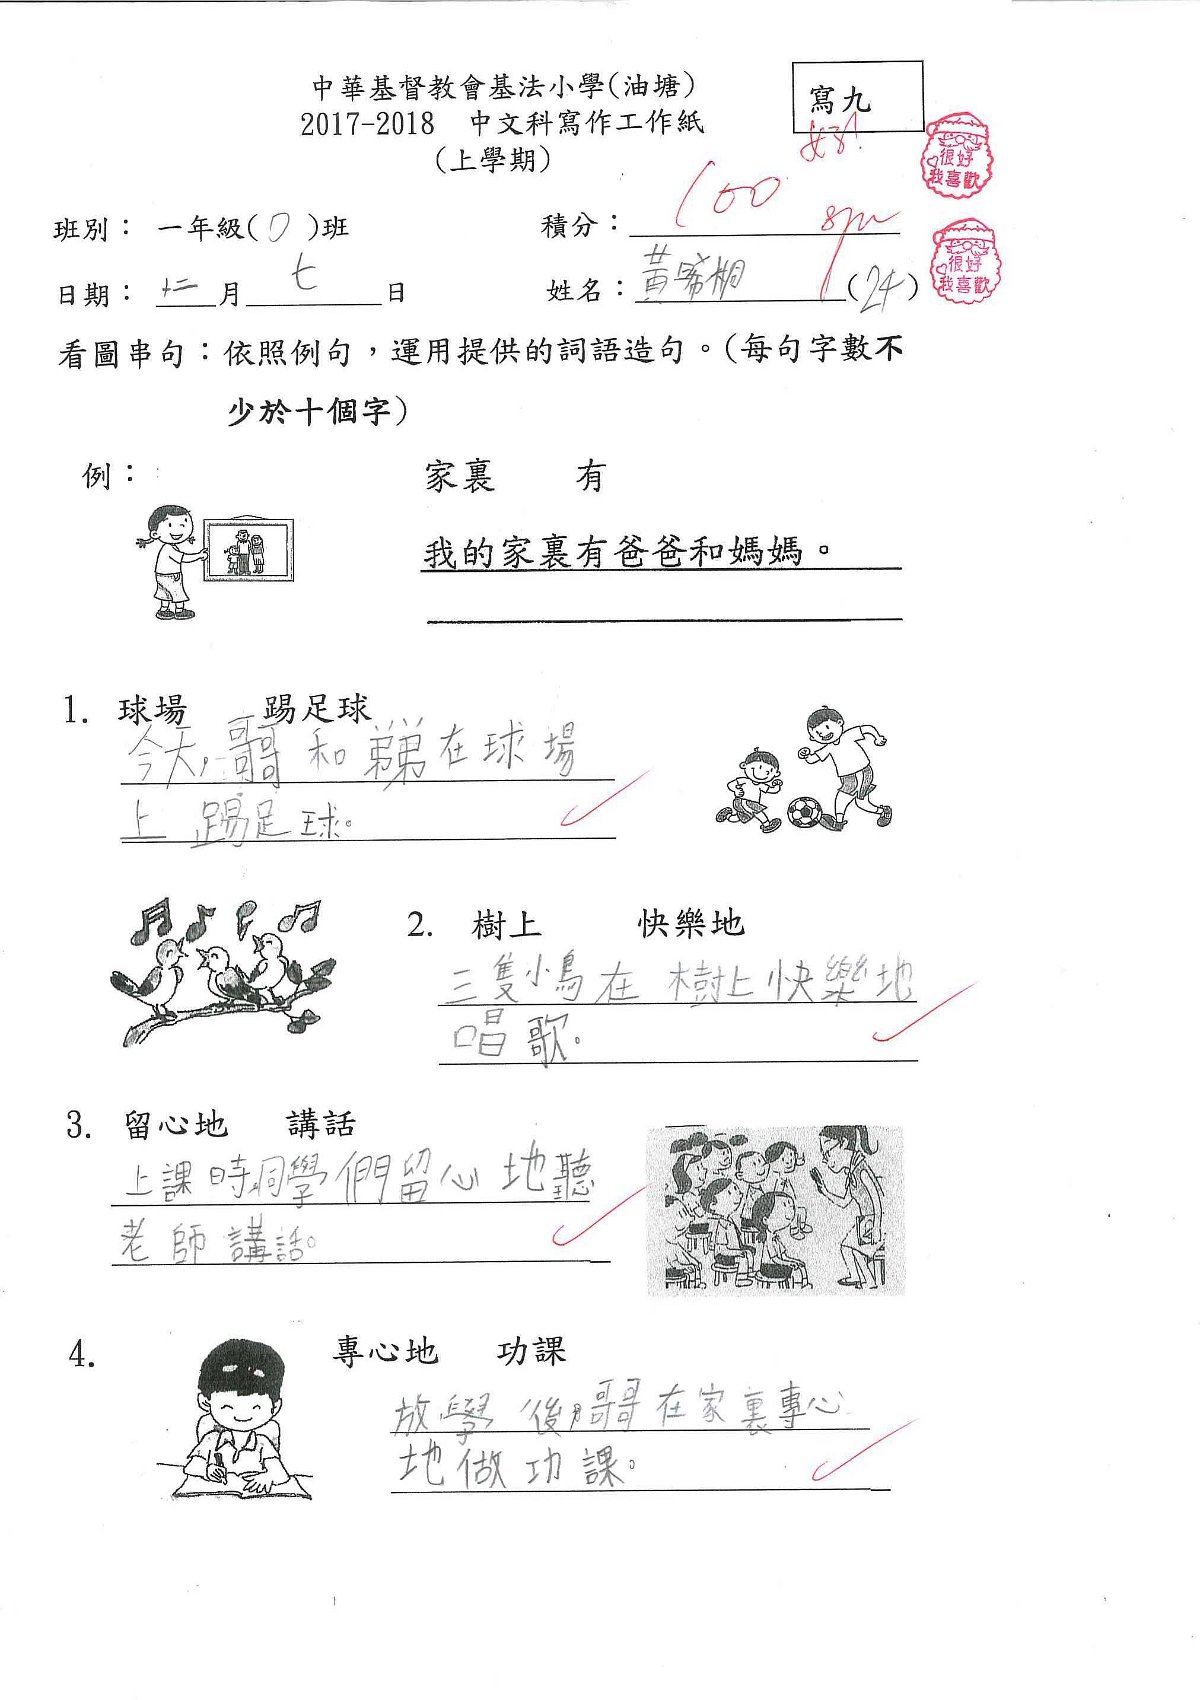 中華基督教會基法小學(油塘)
寫九
2017-2018 中文科寫作工作紙
好!
(上學期)
很好
我喜歡
班別： 一年級(D)班
積分：100
日期：十二月七日
姓名：黃晞桐(24)
很好
我喜歡
看圖串句：依照例句，運用提供的詞語造句。(每句字數不
少於十個字)
例：
家裏 有
我的家裏有爸爸和媽媽。
1. 球場 踢足球
今天,哥哥和弟弟在球場
上踢足球。
2. 樹上 快樂地
三隻小鳥在樹上快樂地
唱歌。
3. 留心地 講話
上課時,同學們留心地聽
老師講話。
4. 專心地 功課
放學後,哥哥在家裏專心
地做功課。